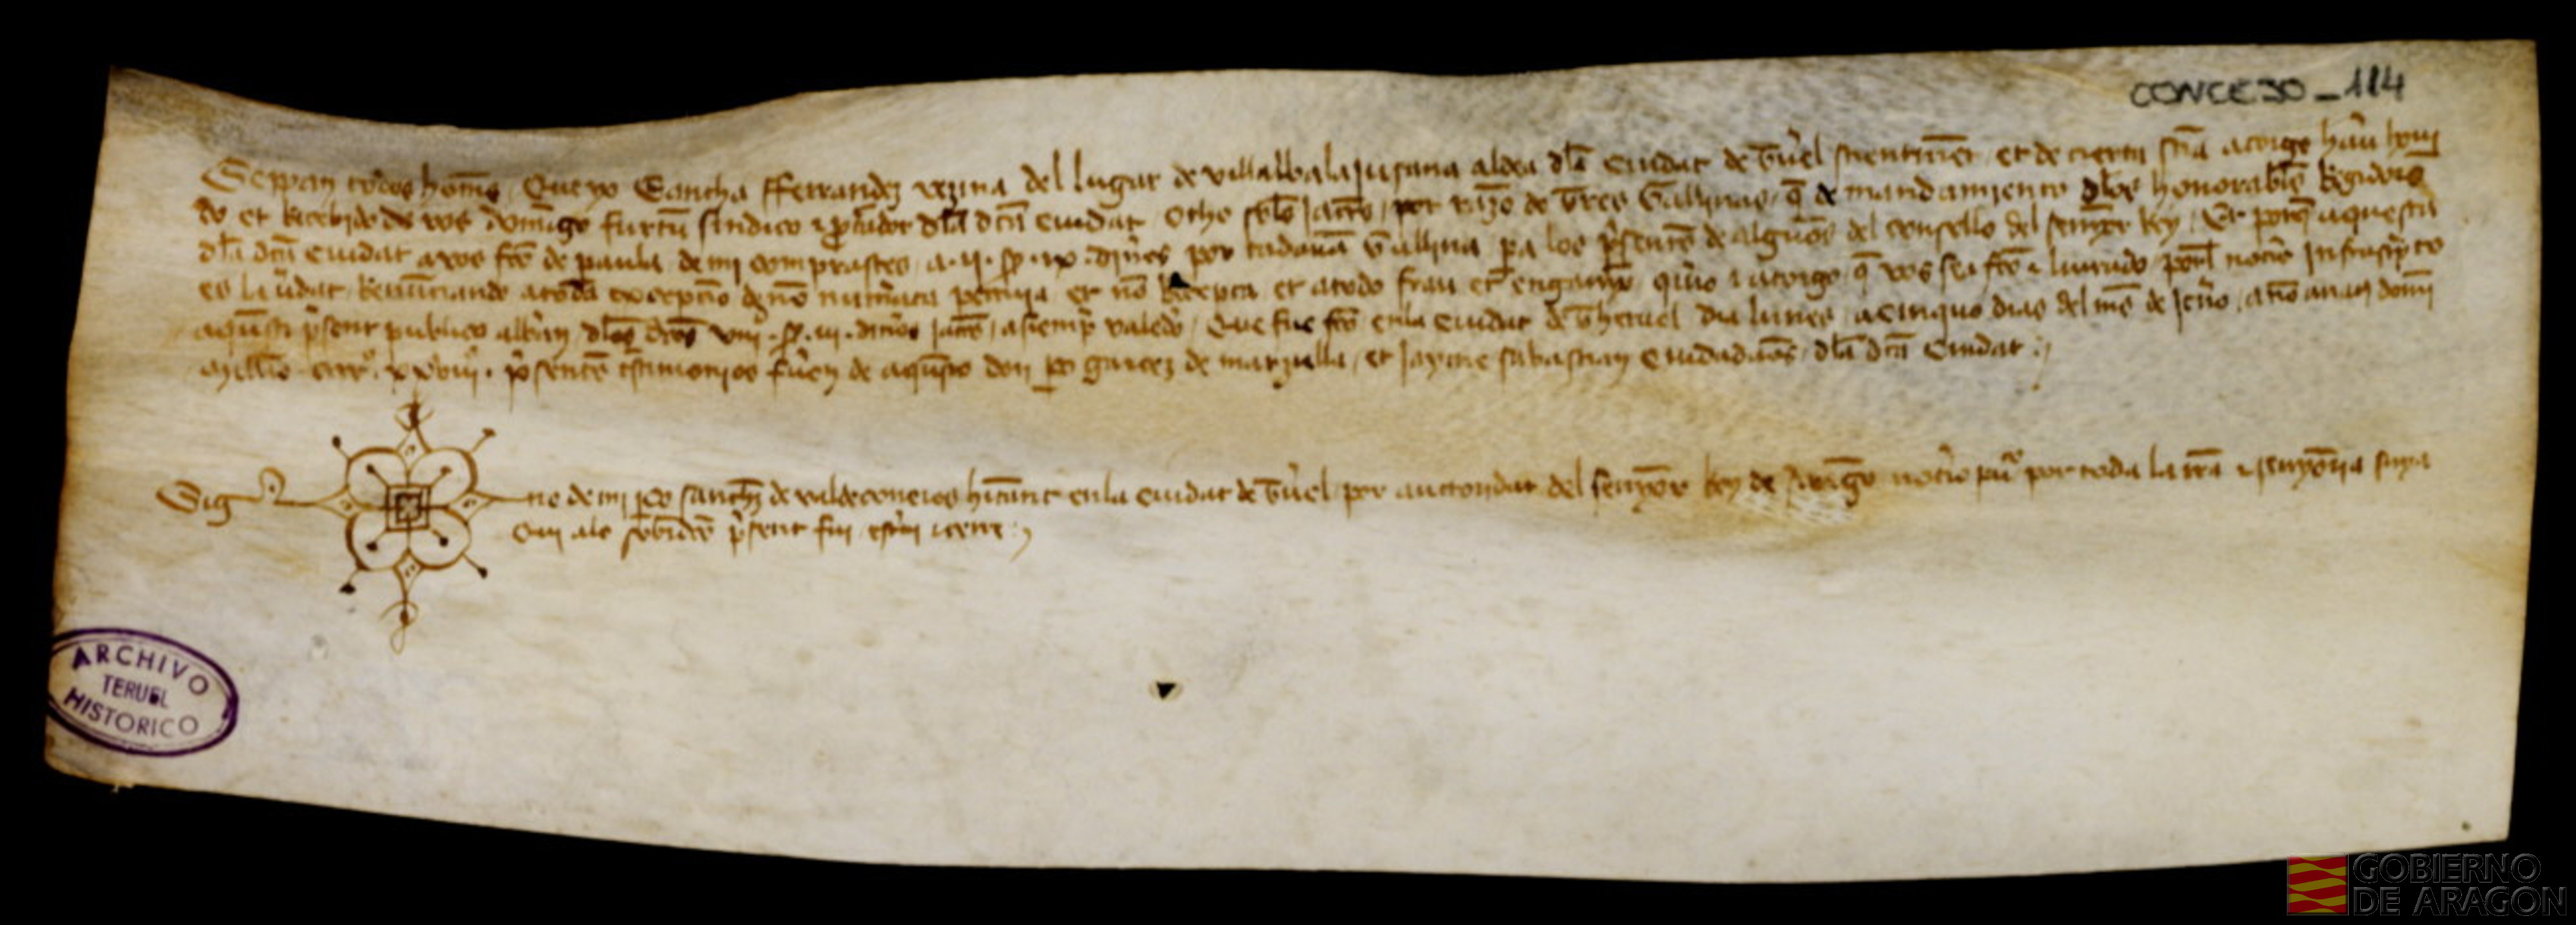 CONCEJO_114
Sepan todos homes Que yo Sancha Fferrandez vezina del lugar de villalbalajusana aldea dla Ciudat de Teruel scientment et de cierta sciencia atorgo hauer houi
do et Recebido de vos domingo furtun sindico e procurador dla dta Ciudat Ocho solos Jacces por razon de tres Gallinas q de mandamiento dlos honorables Regidores
dla dta Ciudat a vos feo de paula de mi comprastes a .ii. ss. ix. dineros por cada una Gallina pa los presentes de algunos del consello del senyor Rey Et porq aquesta
es la verdat Renunciando a toda excepcion de no numerata pecunia et no Recepta et a todo frau et enganyo quiero e atorgo q vos sea feo e liurado por el notario infrascripto
aquesti present publico albaran dlos dtos viii. ss. iii. dineros Jacces a siempre valedero Que fue feo en la Ciudat de Theruel dia lunes a cinquo dias del mes de Jenero anno a nat domini
Millesimo cccc xxviii. presentes testimonios fueron de aquesto don po garcez de marziella et Jayme sabastian Ciudadanos dla dta Ciudat
Sig no de mi po sanchez de valdeconeios habitant en la Ciudat de Teruel por auctoridat del senyor Rey de Aragon notario puco por toda la tierra e senyoria suya
Qui a lo sobredito present fui escriui e cerre
ARCHIVO
TERUEL
HISTORICO
GOBIERNO
DE ARAGON